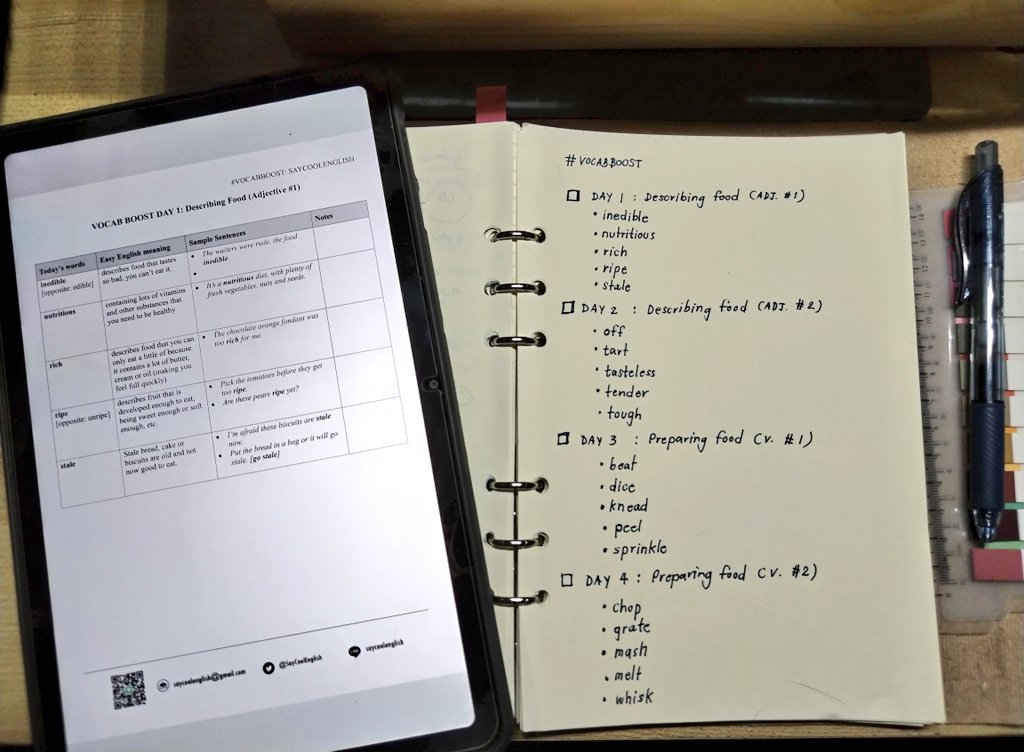 #VOCABBOOST: SAYCOOLENGLISH
VOCAB BOOST DAY 1: Describing Food (Adjective #1)
Today's words Easy English meaning Sample Sentences Notes
inedible
[opposite: edible]
describes food that tastes
so bad, you can't eat it.
• The waiters were rude, the food
inedible.
•
nutritious
containing lots of vitamins
and other substances that
you need to be healthy
• It's a nutritious diet, with plenty of
fresh vegetables, nuts and seeds.
rich
describes food that you can
only eat a little of because
it contains a lot of butter,
cream or oil (making you
feel full quickly)
• The chocolate orange fondant was
too rich for me.
ripe
[opposite: unripe]
describes fruit that is
developed enough to eat,
being sweet enough or soft
enough, etc.
• Pick the tomatoes before they get
too ripe.
• Are these pears ripe yet?
stale
Stale bread, cake or
biscuits are old and not
now good to eat.
• I'm afraid these biscuits are stale
now.
• Put the bread in a bag or it will go
stale. [go stale]
saycoolenglish@gmail.com
@SayCoolEnglish
saycoolenglish
#VOCABBOOST
DAY 1 : Describing food (ADJ. #1)
• inedible
• nutritious
• rich
• ripe
• stale
DAY 2 : Describing food (ADJ. #2)
• off
• tart
• tasteless
• tender
• tough
DAY 3 : Preparing food (V. #1)
• beat
• dice
• knead
• peel
• sprinkle
DAY 4 : Preparing food (V. #2)
• chop
• grate
• mash
• melt
• whisk